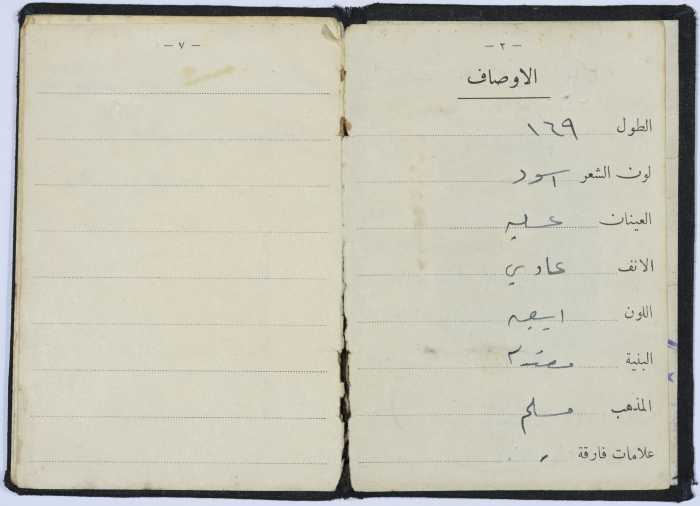 — ٢ —
الاوصاف
الطول ١٦٩
لون الشعر اسود
العينان عسليه
الانف عادي
اللون ابيض
البنية
المذهب مسلم
علامات فارقة
— ٧ —